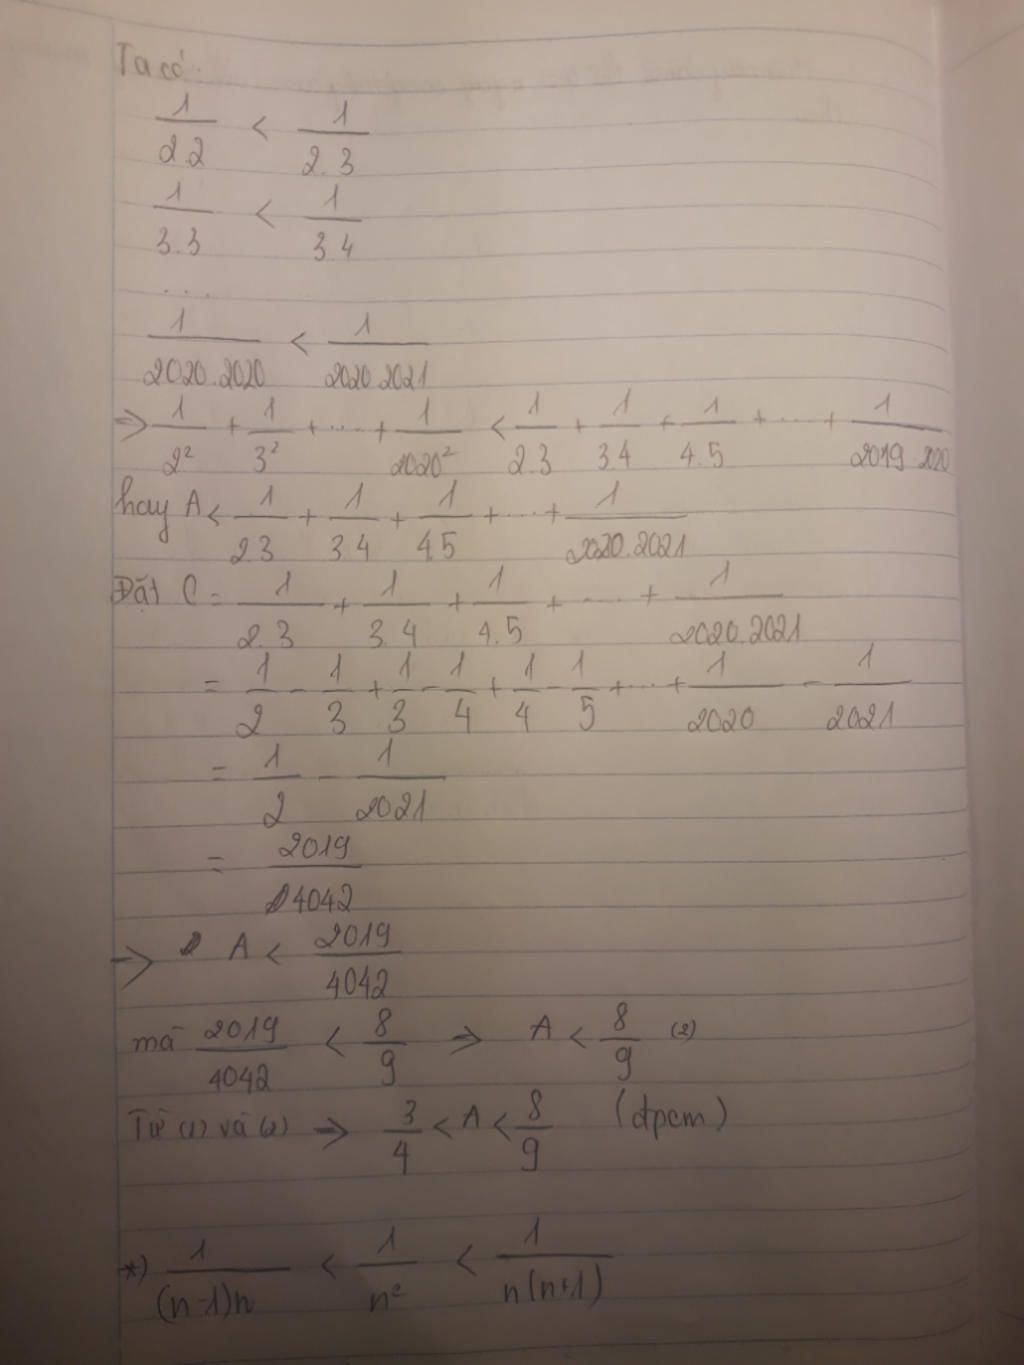 Ta có:
1/2.2 < 1/2.3
1/3.3 < 1/3.4
...
1/2020.2020 < 1/2020.2021
=> 1/2² + 1/3² + .... + 1/2020² < 1/2.3 + 1/3.4 + 1/4.5 + .... + 1/2019.2020
hay A < 1/2.3 + 1/3.4 + 1/4.5 + .... + 1/2020.2021
Đặt C = 1/2.3 + 1/3.4 + 1/4.5 + .... + 1/2020.2021
= 1/2 - 1/3 + 1/3 - 1/4 + 1/4 - 1/5 + ... + 1/2020 - 1/2021
= 1/2 - 1/2021
= 2019/4042
=> A < 2019/4042
mà 2019/4042 < 8/9 => A < 8/9 (2)
Từ (1) và (2) => 3/4 < A < 8/9 (đpcm)
*) 1/(n-1)n < 1/n² < 1/n(n+1)